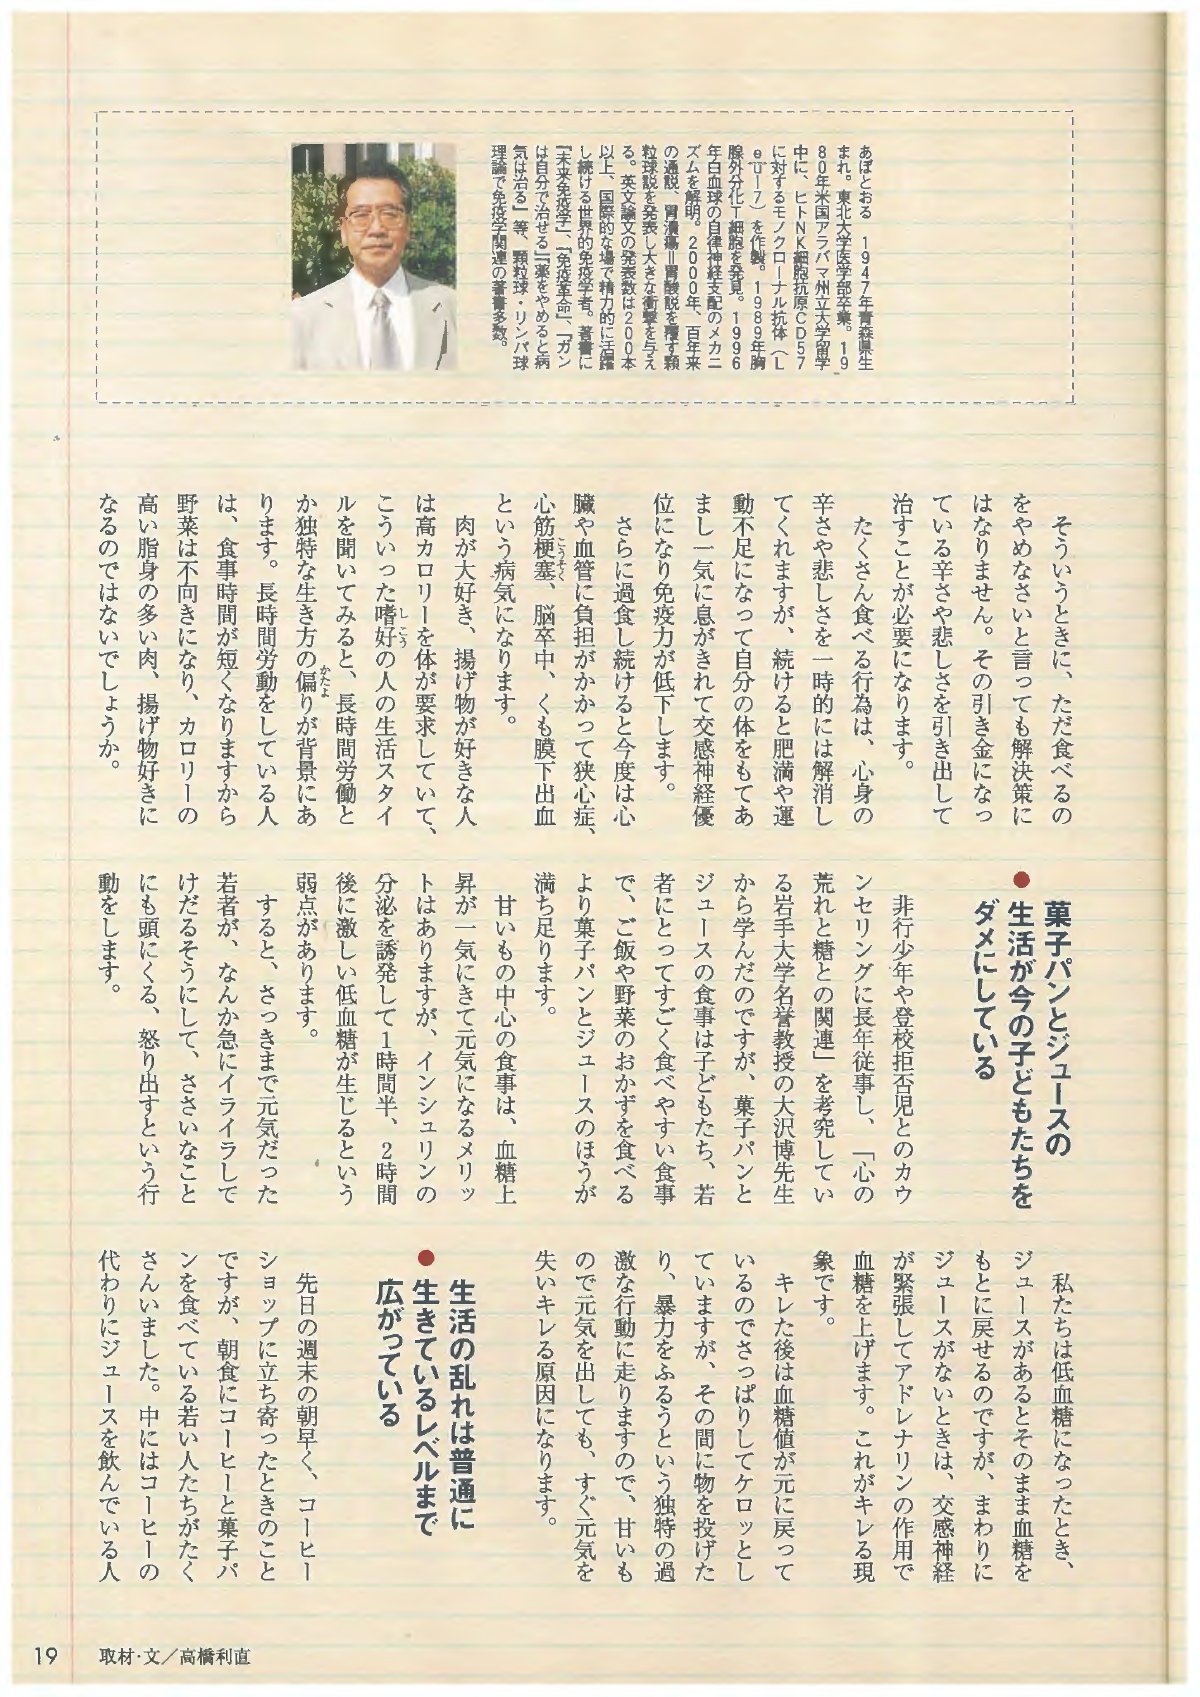 あぼとおる 1947年青森県生
まれ。東北大学医学部卒業。19
80年米国アラバマ州立大学留学
中に、ヒトNK細胞抗原CD57
に対するモノクローナル抗体(L
eu-7)を作製。1989年胸
腺外分化T細胞を発見。1996
年白血球の自律神経支配のメカニ
ズムを解明。2000年、百年来
の通説、胃潰瘍＝胃酸説を覆す顆
粒球説を発表し大きな衝撃を与え
る。英文論文の発表数は200本
以上、国際的な場で精力的に活躍
し続ける世界的免疫学者。著書に
『未来免疫学』、『免疫革命』、『ガン
は自分で治せる』『薬をやめると病
気は治る』等、顆粒球・リンパ球
理論で免疫学関連の著書多数。
そういうときに、ただ食べるの
をやめなさいと言っても解決策に
はなりません。その引き金になっ
ている辛さや悲しさを引き出して
治すことが必要になります。
たくさん食べる行為は、心身の
辛さや悲しさを一時的には解消し
てくれますが、続けると肥満や運
動不足になって自分の体をもてあ
まし一気に息がきれて交感神経優
位になり免疫力が低下します。
さらに過食し続けると今度は心
臓や血管に負担がかかって狭心症、
心筋梗塞、脳卒中、くも膜下出血
という病気になります。
肉が大好き、揚げ物が好きな人
は高カロリーを体が要求していて、
こういった嗜好の人の生活スタイ
ルを聞いてみると、長時間労働と
か独特な生き方の偏りが背景にあ
ります。長時間労働をしている人
は、食事時間が短くなりますから
野菜は不向きになり、カロリーの
高い脂身の多い肉、揚げ物好きに
なるのではないでしょうか。
菓子パンとジュースの
● 生活が今の子どもたちを
ダメにしている
非行少年や登校拒否児とのカウ
ンセリングに長年従事し、「心の
荒れと糖との関連」を考究してい
る岩手大学名誉教授の大沢博先生
から学んだのですが、菓子パンと
ジュースの食事は子どもたち、若
者にとってすごく食べやすい食事
で、ご飯や野菜のおかずを食べる
より菓子パンとジュースのほうが
満ち足ります。
甘いもの中心の食事は、血糖上
昇が一気にきて元気になるメリッ
トはありますが、インシュリンの
分泌を誘発して1時間半、2時間
後に激しい低血糖が生じるという
弱点があります。
すると、さっきまで元気だった
若者が、なんか急にイライラして
けだるそうにして、ささいなこと
にも頭にくる、怒り出すという行
動をします。
私たちは低血糖になったとき、
ジュースがあるとそのまま血糖を
もとに戻せるのですが、まわりに
ジュースがないときは、交感神経
が緊張してアドレナリンの作用で
血糖を上げます。これがキレる現
象です。
キレた後は血糖値が元に戻って
いるのでさっぱりしてケロッとし
ていますが、その間に物を投げた
り、暴力をふるうという独特の過
激な行動に走りますので、甘いも
ので元気を出しても、すぐ元気を
失いキレる原因になります。
生活の乱れは普通に
● 生きているレベルまで
広がっている
先日の週末の朝早く、コーヒー
ショップに立ち寄ったときのこと
ですが、朝食にコーヒーと菓子パ
ンを食べている若い人たちがたく
さんいました。中にはコーヒーの
代わりにジュースを飲んでいる人
19 取材・文／高橋利直